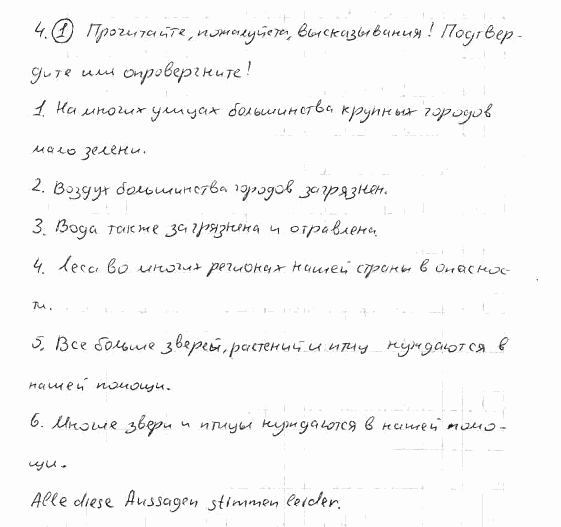 4. ① Прочитайте, пожалуйста, высказывания! Подтвер-
дите или опровергните!
1. На многих улицах большинства крупных городов
мало зелени.
2. Воздух большинства городов загрязнен.
3. Вода также загрязнена и отравлена.
4. Леса во многих регионах нашей страны в опаснос-
ти.
5. Все больше зверей, растений и птиц нуждаются в
нашей помощи.
6. Многие звери и птицы нуждаются в нашей помо-
щи.
Alle diese Aussagen stimmen leider.